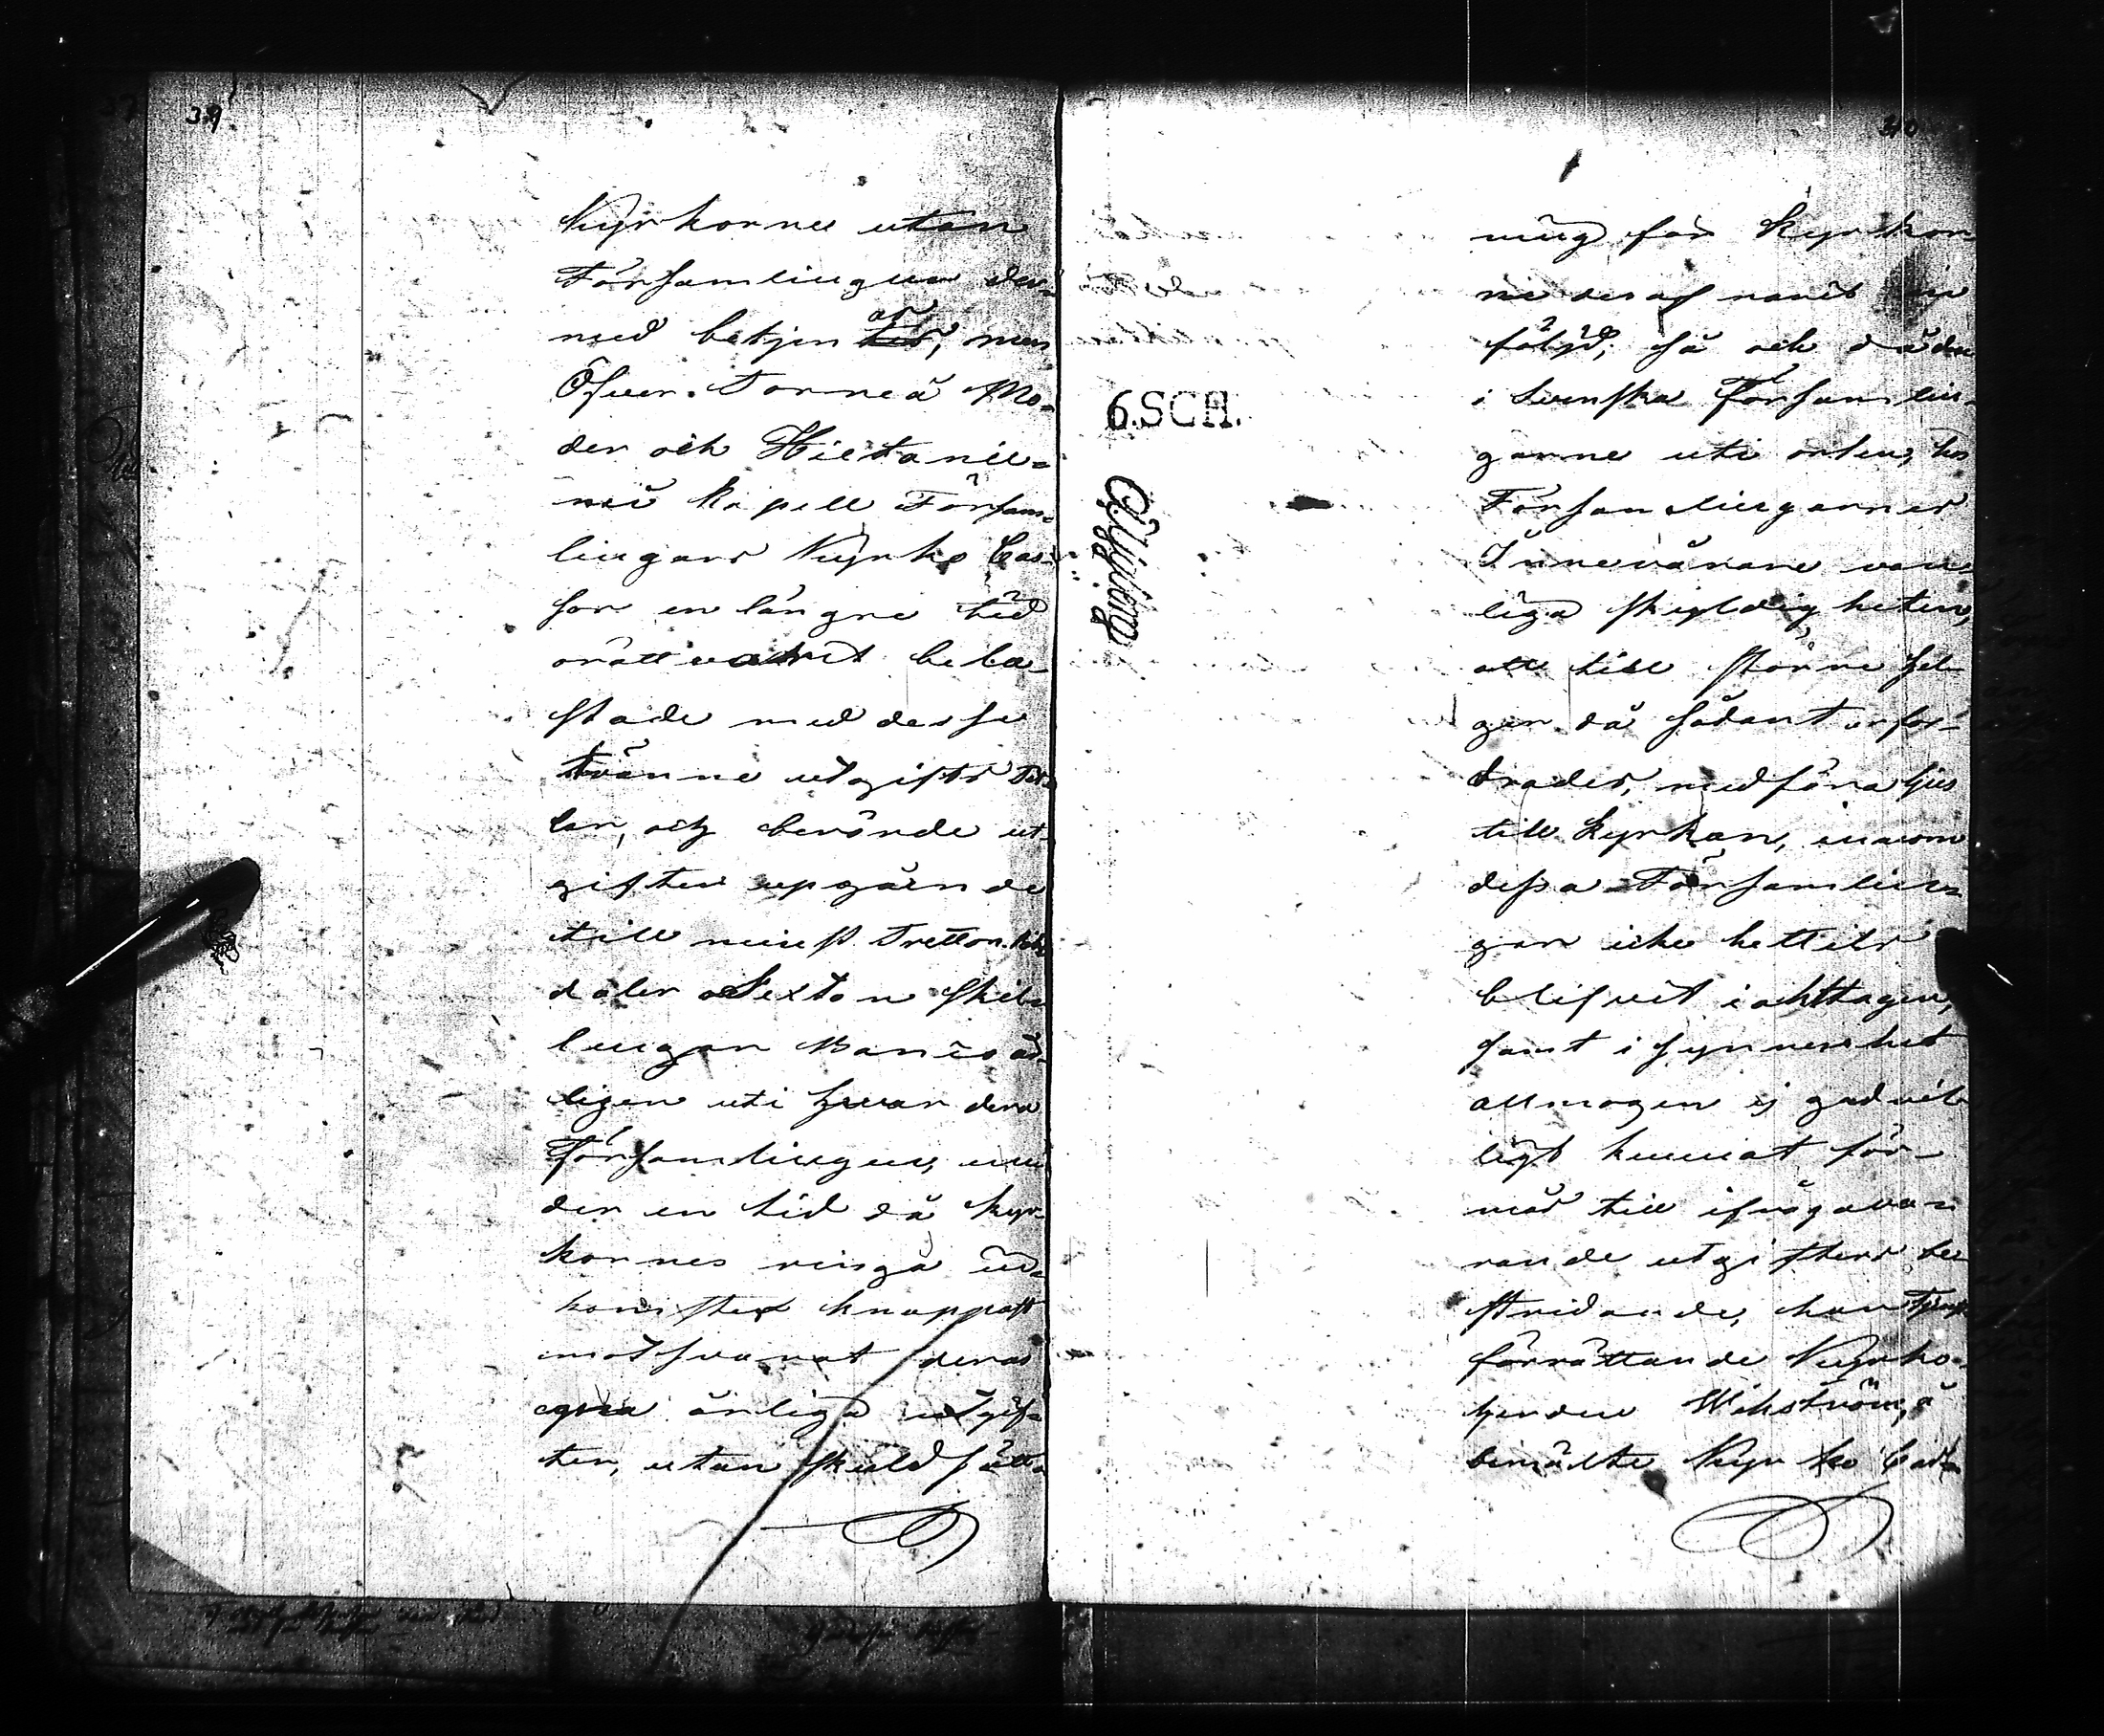 39
Kyrkorne utan
Församlingen der-
med betjentes, men
Öfver Torneå Mo-
der och Hietanie-
mi Kapell Försam-
lingars Kyrko Cas-
sor en längre tid
orätt varit bela-
stade med dessa
tvänne utgifts Tit-
lar, och berörde ut-
gifter upgående
till minst Tretton Riks
daler Sexton Skil-
lingar Banco år-
ligen uti hvardera
Församlingen, un-
der en tid då Kyr-
kornes ringa in-
komster knappast
motsvarat deras
egna årliga utgif-
ter, utan skuldsätt-
40
ning för Kyrkor-
ne deraf varit en
följd; så och då den
i Svenska Församlin-
garne uti orten, hos
Församlingarnes
Innevånare van-
liga skyldigheten,
att till större hel-
ger då sådant erfor-
drades, medföra ljus
till Kyrkan, inom
dessa Församlin-
gar icke hittils
blifvit iakttagen,
samt i synnerhet
allmogen ej godvil-
ligt kunnat för-
mås till ifrågava-
rande utgifters be-
stridande, han Tjenst
förrättande Kyrko-
herden Wikström, å
bemälte Kyrko Cas-
6.SCH.